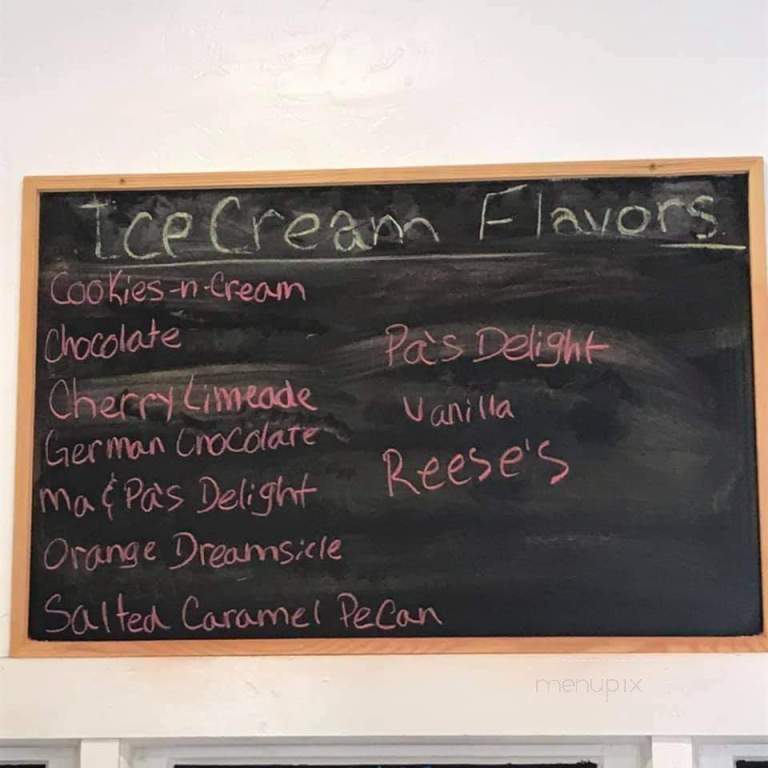 Ice Cream Flavors
Cookies-n-Cream
Chocolate
Cherry Limeade
German Chocolate
Ma & Pa's Delight
Orange Dreamsicle
Salted Caramel Pecan
Pa's Delight
Vanilla
Reese's
menupix